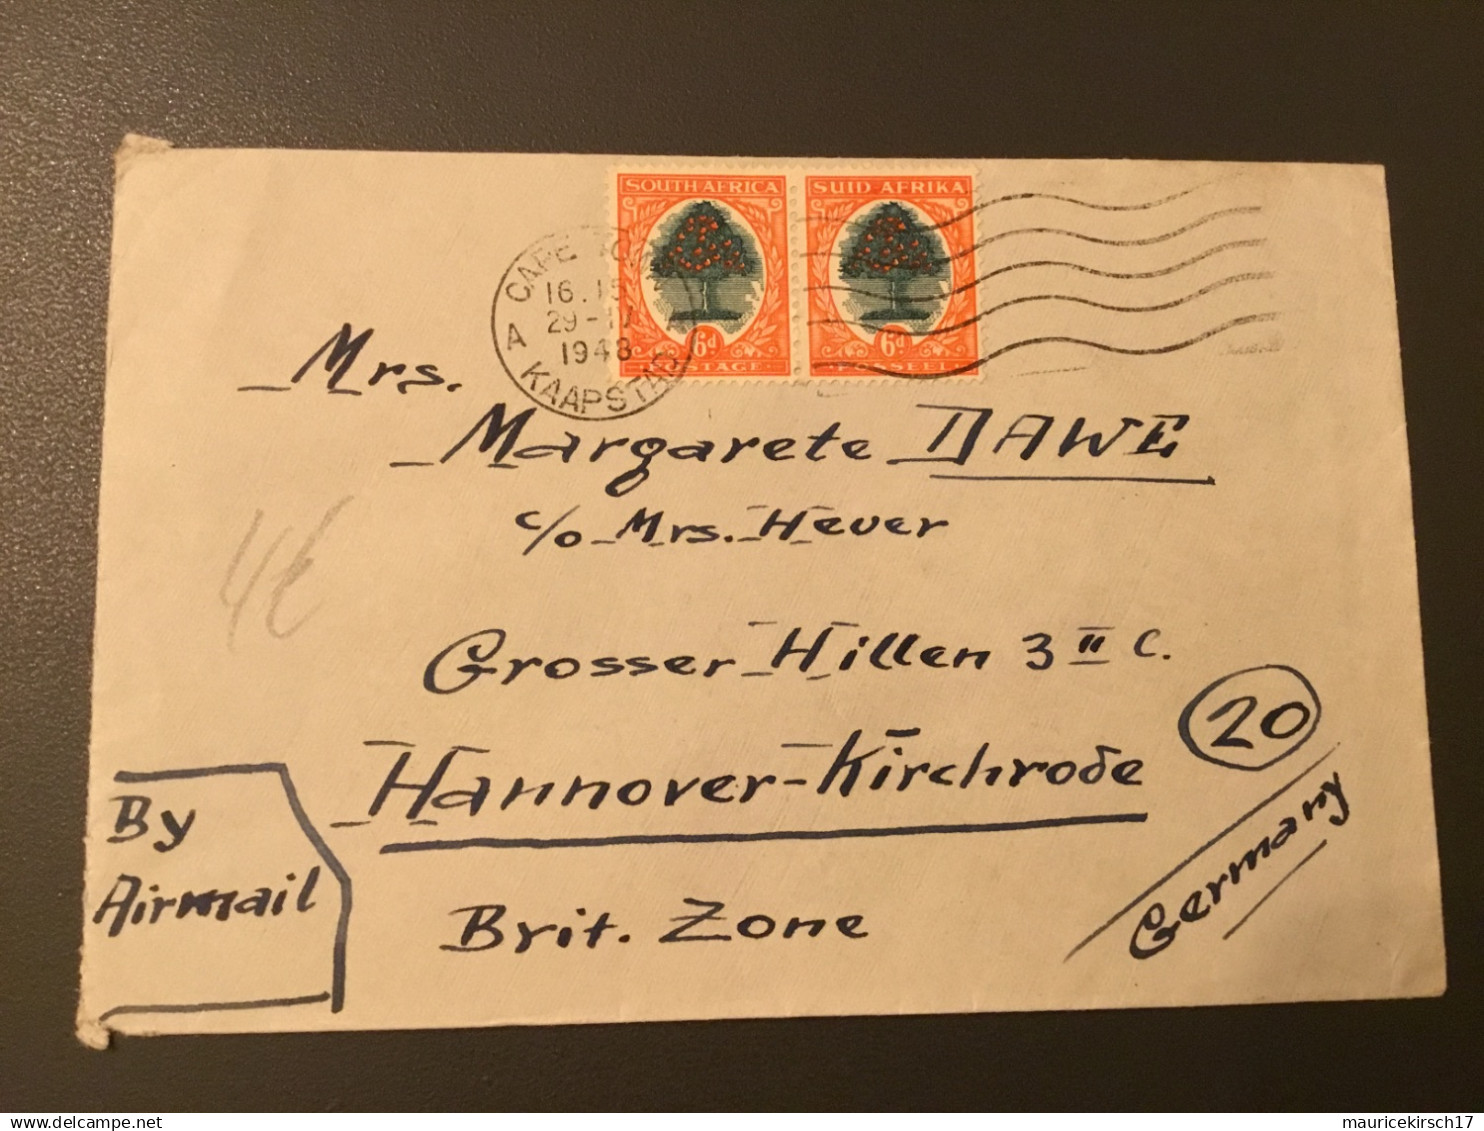 SOUTH AFRICA
SUID AFRIKA
6d
6d
POSTAGE
POSSEEL
CAPE TOWN
16.15
29-11
1948
A KAAPSTAD
Mrs.
Margarete DAWE
c/o Mrs. Hever
Grosser Hillen 3 II C.
Hannover-Kirchrode
20
Brit. Zone
Germany
By
Airmail
delcampe.net
mauricekirsch17